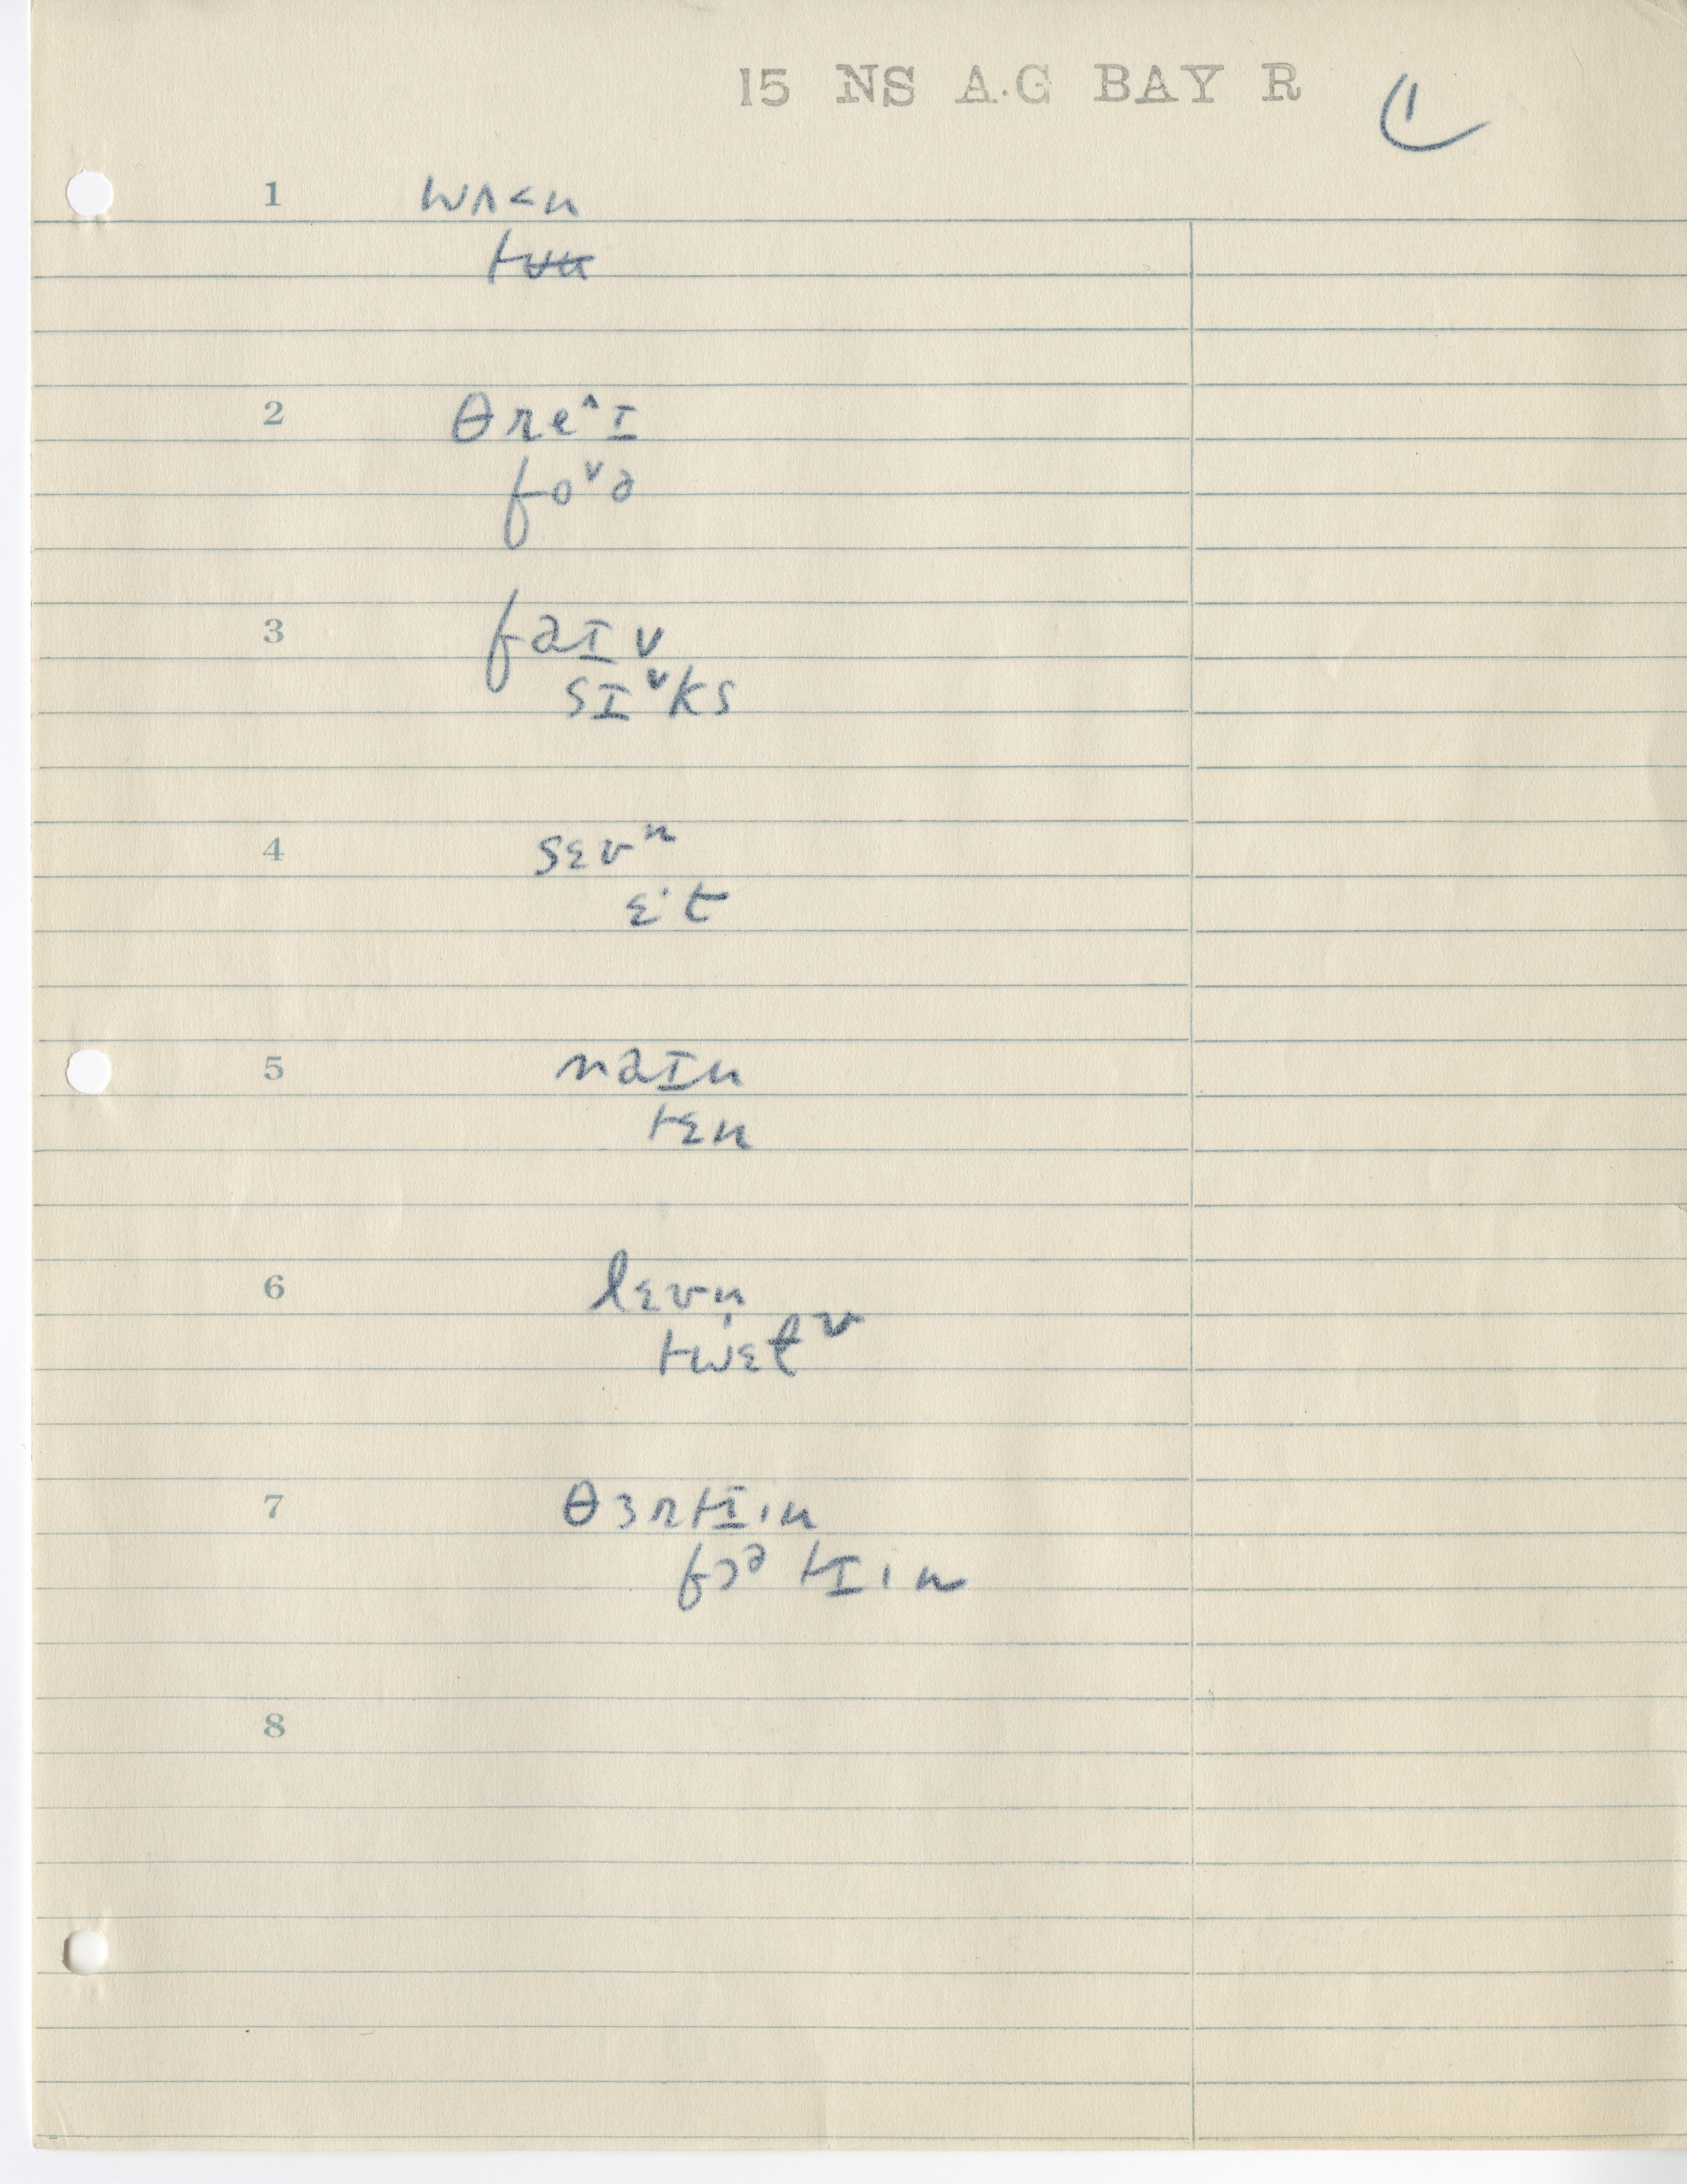 15 NS A.G BAY R 1
1 wʌ<n
tʉʉ
2 θre^ɪ
fo˅ə
3 faɪv
sɪ˅ks
4 sɛvⁿ
ɛ·t
5 naɪn
tɛn
6 lɛvn̩
twɛɫᵛ
7 θɜrtɪin
fɔᵊtɪin
8